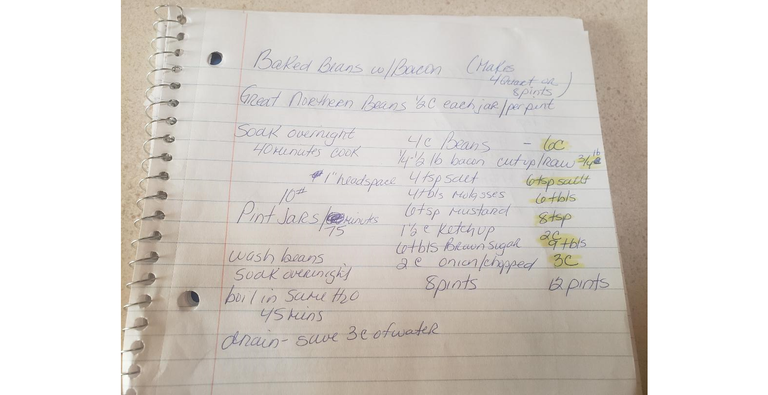 Baked Beans w/Bacon (Makes
4 quart or
8 pints)
Great Northern Beans 1/2 C each jar/per pint
Soak overnight
40 minutes cook
1" headspace
10#
Pint Jars/ minuts
75
wash beans
soak overnight
boil in same H2O
45 mins
drain - save 3 c of water
4 c Beans - 6c
1/4-1/2 lb bacon cut up/raw 3/4 lb
4 tsp salt 6 tsp salt
4 tbls molasses 6 tbls
6 tsp mustard 8 tsp
1 1/2 c Ketchup 2C
6 tbls Brown sugar 9 tbls
2 c onion/chopped 3C
8 pints 12 pints